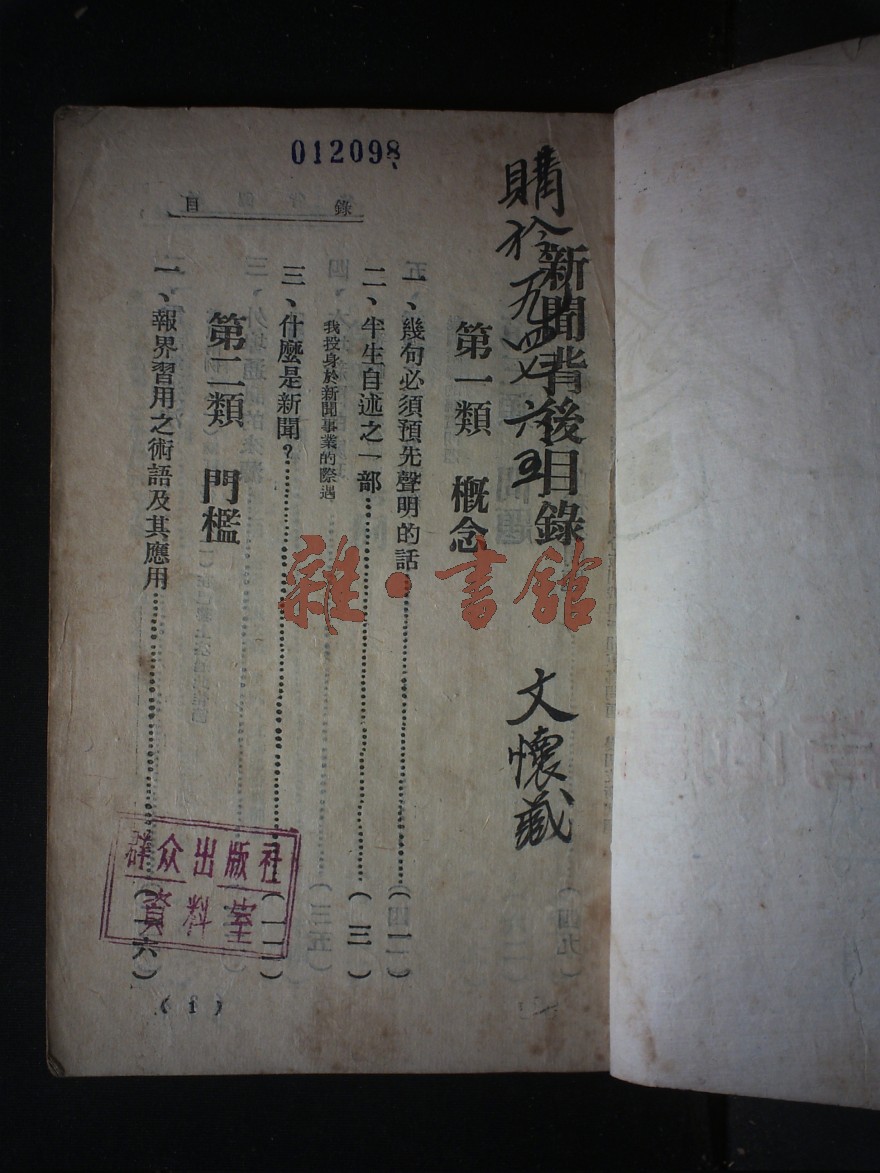 012098
目錄
新聞背後目錄
購於一九四七、六、五
文懷藏
第一類 概念
一、幾句必須預先聲明的話……(一)
二、半生自述之一部……(三)
我投身於新聞事業的際遇
三、什麼是新聞?……(一一)
第二類 門檻
一、報界習用之術語及其應用……(一六)
(1)
群众出版社
資料室
雜·書館